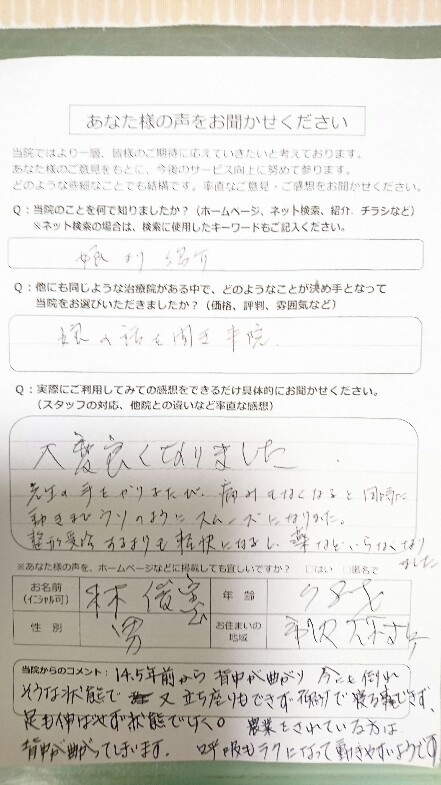 あなた様の声をお聞かせください
当院ではより一層、皆様のご期待に応えていきたいと考えております。
あなた様のご意見をもとに、今後のサービス向上に努めて参ります。
どのような些細なことでも結構です。率直なご意見・ご感想をお聞かせください。
Q：当院のことを何で知りましたか？（ホームページ、ネット検索、紹介、チラシなど）
※ネット検索の場合は、検索に使用したキーワードもご記入ください。
娘より紹介
Q：他にも同じような治療院がある中で、どのようなことが決め手となって
当院をお選びいただきましたか？（価格、評判、雰囲気など）
娘の話を聞き来院
Q：実際にご利用してみての感想をできるだけ具体的にお聞かせください。
（スタッフの対応、他院との違いなど率直な感想）
大変良くなりました
先生の手をかりましたが、痛みもなくなると同時に
動きまでウソのようにスムーズになりました。
整形受診するよりも軽快になるし、薬などいらなくなりました
※あなた様の声を、ホームページなどに掲載しても宜しいですか？ □はい □匿名で
お名前
（イニシャル可）
林 俊
年 齢
性 別
男
お住まいの
地域
当院からのコメント：14.5年前から背中が曲がり 今にも倒れ
そうな状態で 又 立ち座りもできず 仰向けで寝る事もできず、
足も伸ばせず状態でした。 農業をされている方は
背中が曲がってしまいます。 呼吸もラクになって動きやすいようです